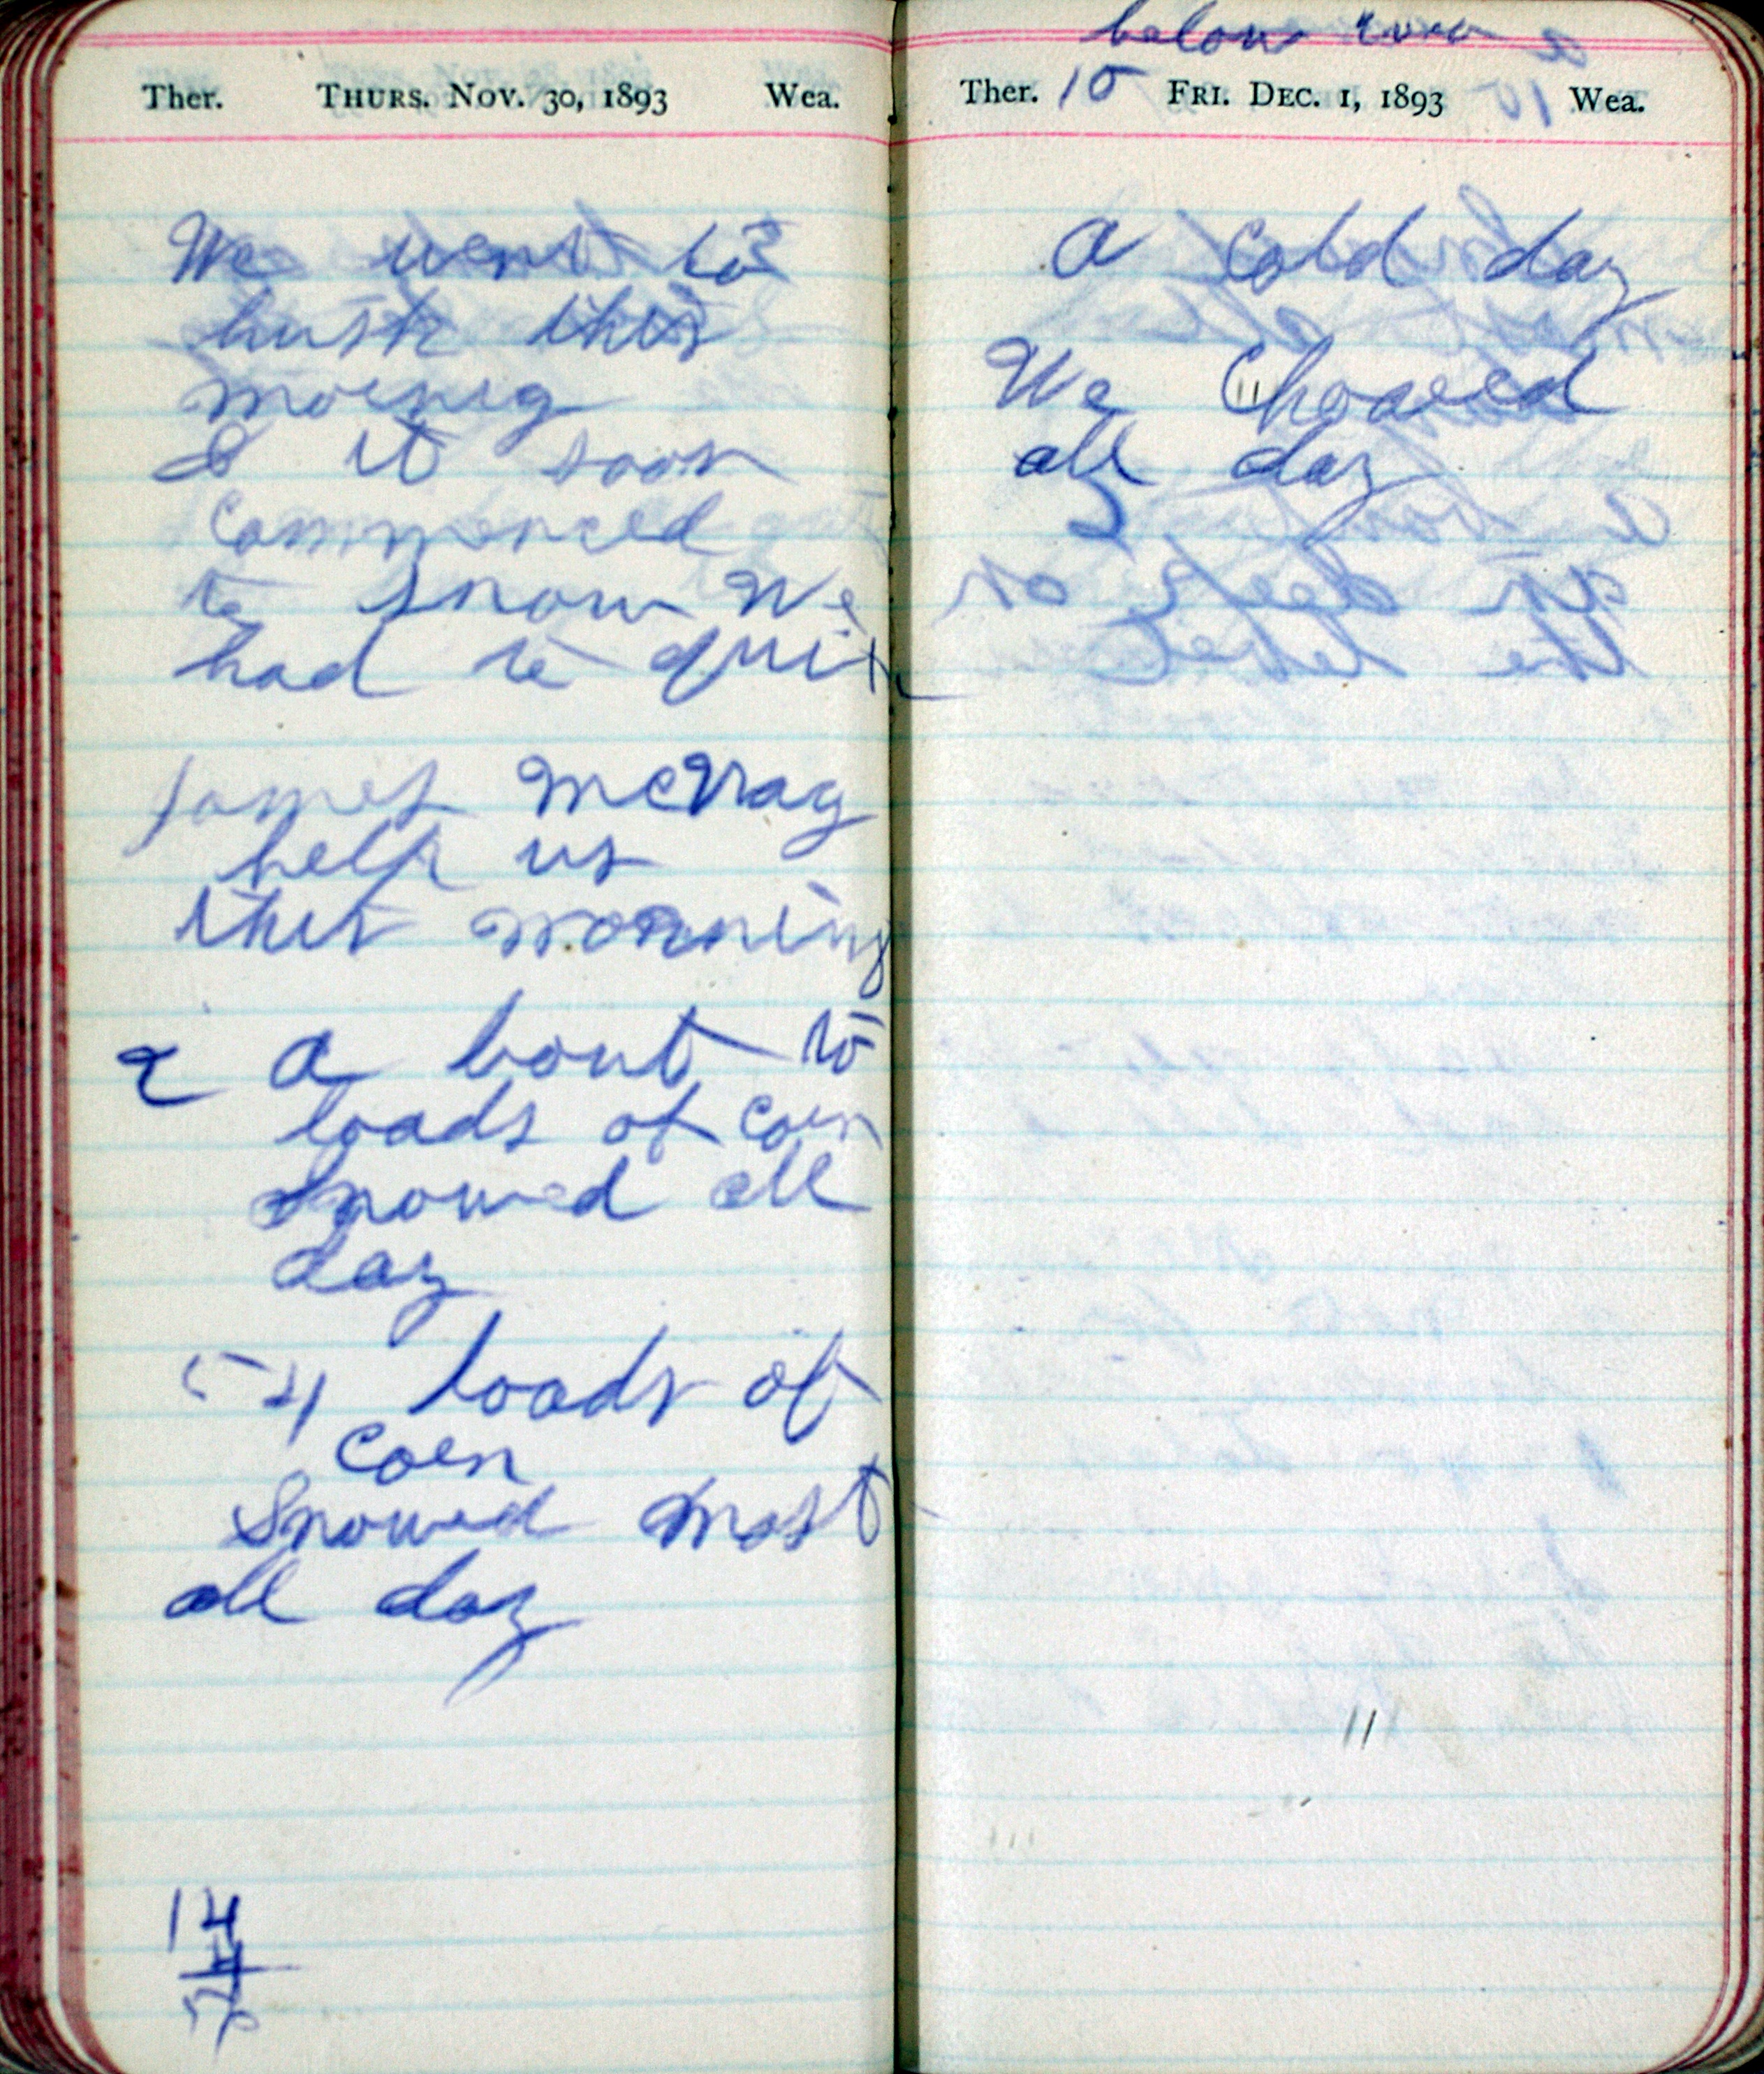 Ther. THURS. NOV. 30, 1893 Wea.
We went to
husk this
morning
& it soon
commenced
to snow We
had to quit
James McVray
help us
this morning
2 a bout to
loads of corn
Snowed all
day
54 loads of
corn
Snowed most
all day
below zero
Ther. 10 FRI. DEC. 1, 1893 Wea.
A Cold day
We Choared
all day